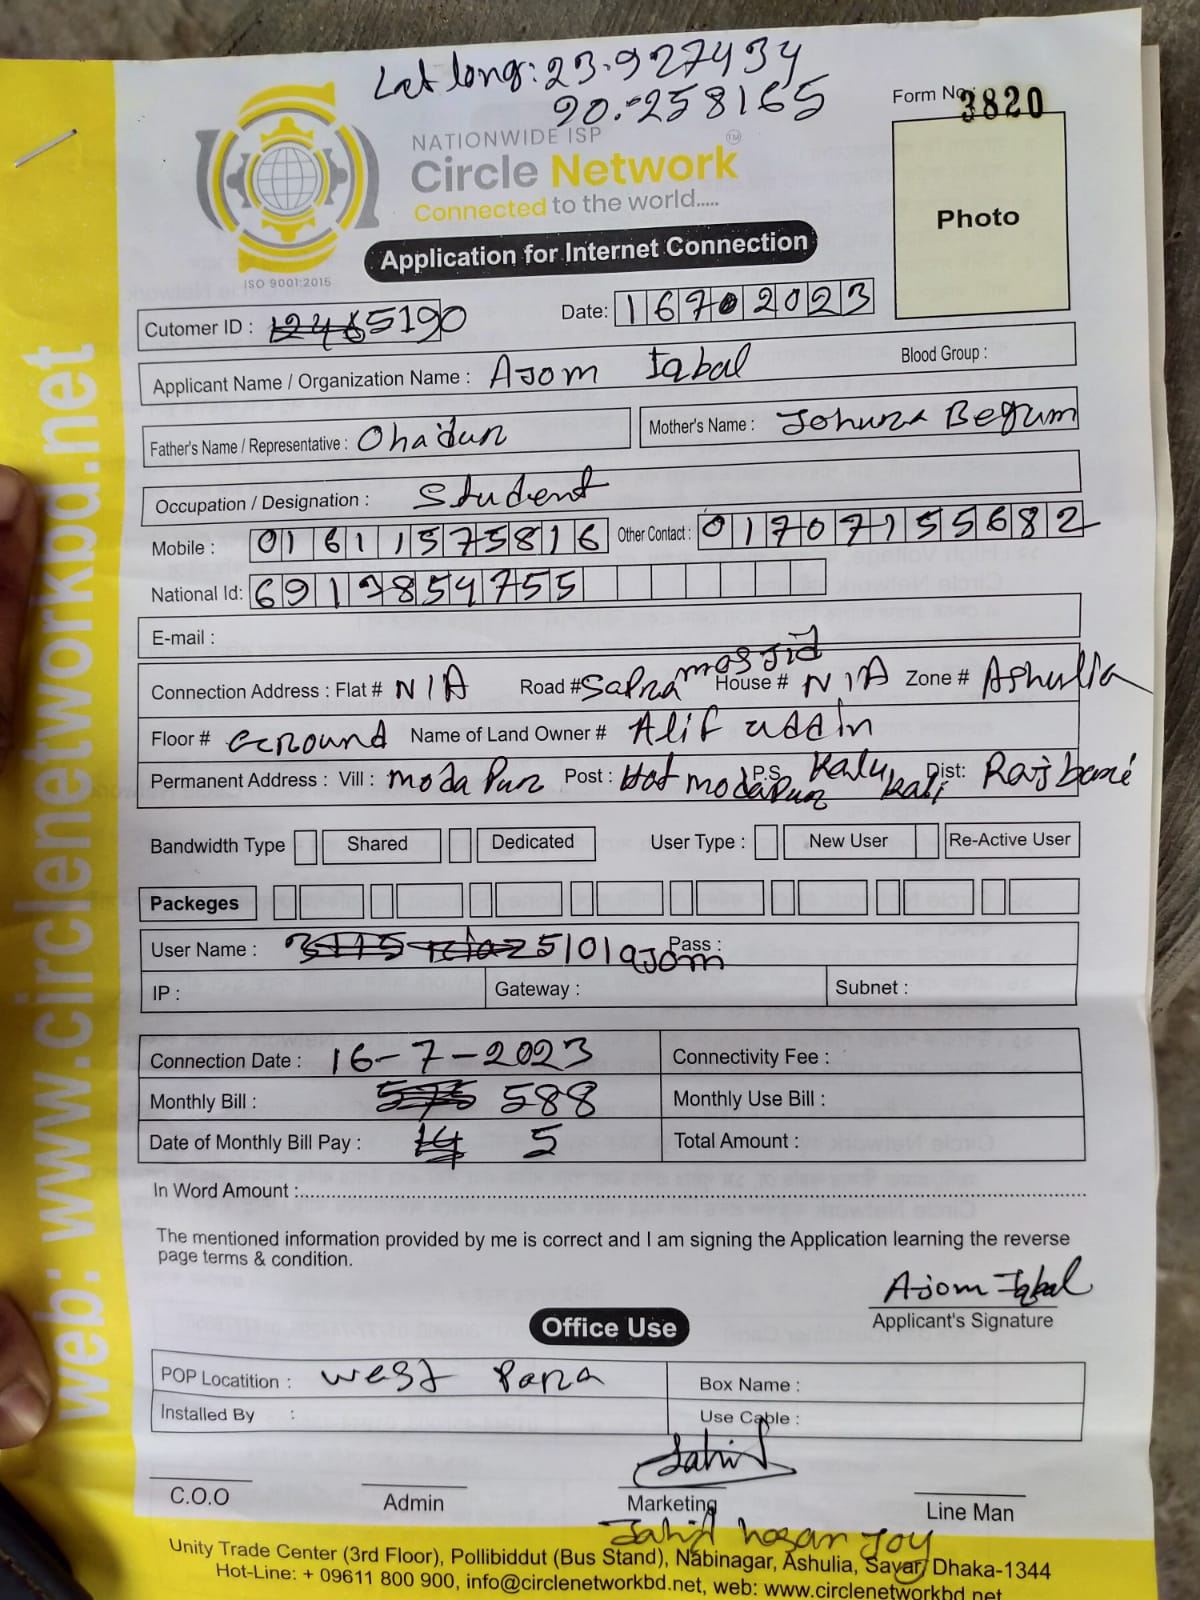 Lat long: 23.927434
90.258165
Form No: 3820
NATIONWIDE ISP
Circle Network TM
Connected to the world.....
ISO 9001:2015
Photo
Application for Internet Connection
Cutomer ID : 5190 Date: 16702023
Applicant Name / Organization Name : Ajom Iqbal Blood Group :
Father's Name / Representative : Ohadur Mother's Name : Johura Begum
Occupation / Designation : Student
Mobile : 01611575816 Other Contact : 01707155682
National Id: 6913854755
E-mail :
Connection Address : Flat # N/A Road # Sapra mosjid House # N/A Zone # Ashulia
Floor # Ground Name of Land Owner # Alif uddin
Permanent Address : Vill : moda Pur Post : Hat modaPur P.S Kalu kali Dist: Rajbari
Bandwidth Type Shared Dedicated User Type : New User Re-Active User
Packeges
User Name : 5101ajom Pass :
IP : Gateway : Subnet :
Connection Date : 16-7-2023 Connectivity Fee :
Monthly Bill : 575 588 Monthly Use Bill :
Date of Monthly Bill Pay : 14 5 Total Amount :
In Word Amount :
The mentioned information provided by me is correct and I am signing the Application learning the reverse
page terms & condition.
Ajom Iqbal
Applicant's Signature
Office Use
POP Locatition : West Para Box Name :
Installed By : Use Cable :
Jahid
C.O.O Admin Marketing Line Man
Jahid hosan Joy
Unity Trade Center (3rd Floor), Pollibiddut (Bus Stand), Nabinagar, Ashulia, Savar, Dhaka-1344
Hot-Line: + 09611 800 900, info@circlenetworkbd.net, web: www.circlenetworkbd.net
web: www.circlenetworkbd.net